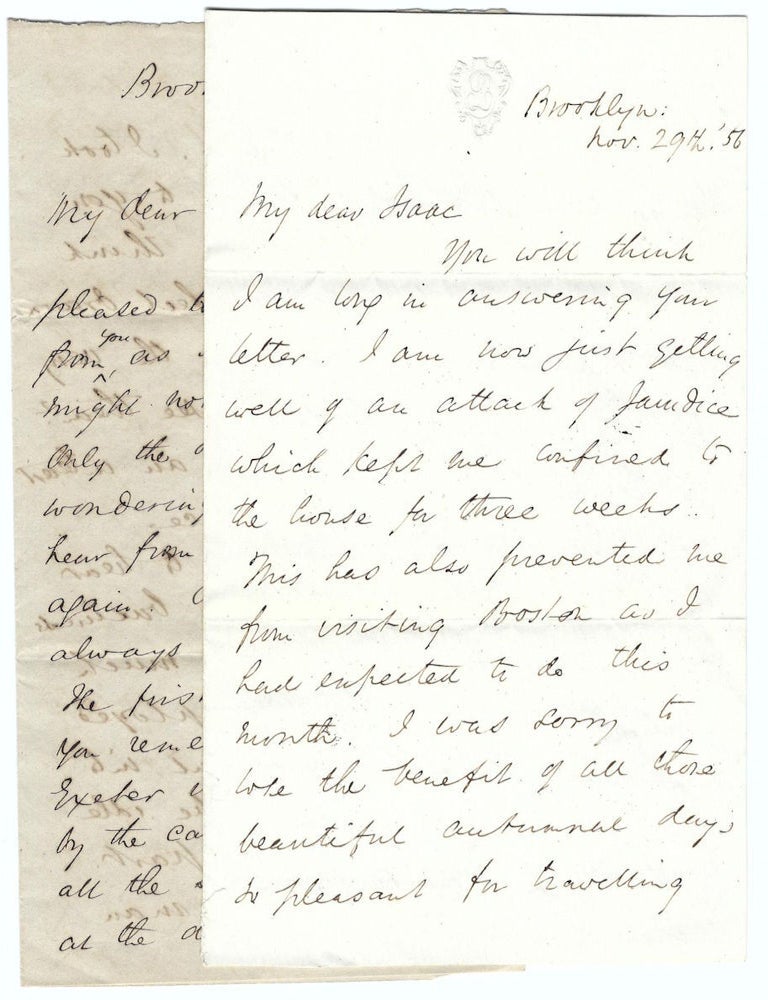 Brooklyn:
Nov. 29th. '56
My dear Isaac
You will think
I am long in answering your
letter. I am now just getting
well of an attack of Jaundice
which kept me confined to
the house for three weeks.
This has also prevented me
from visiting Boston as I
had expected to do this
month. I was sorry to
lose the benefit of all those
beautiful autumnal days
so pleasant for travelling
Broo
My dear
pleased
you
from as
might no
Only the
wondering
hear from
again.
always
The firs
You reme
Exeter
by the ca
all the
at the